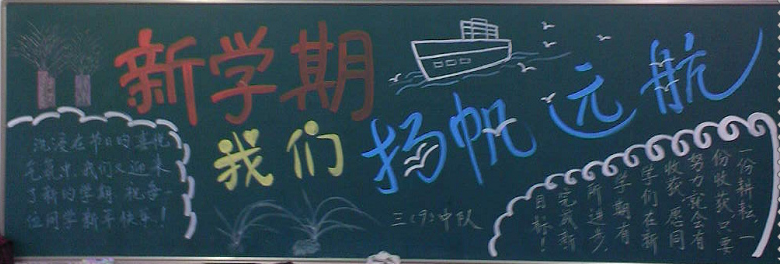 新学期
我们
扬帆远航
沉浸在节日的喜悦
气氛中,我们又迎来
了新的学期,祝各
位同学新年快乐!
三(9)中队
一份耕耘,一
份收获,只要
努力就会有
收获,愿同
学们在新
学期有
所进步,
完成新
目标!